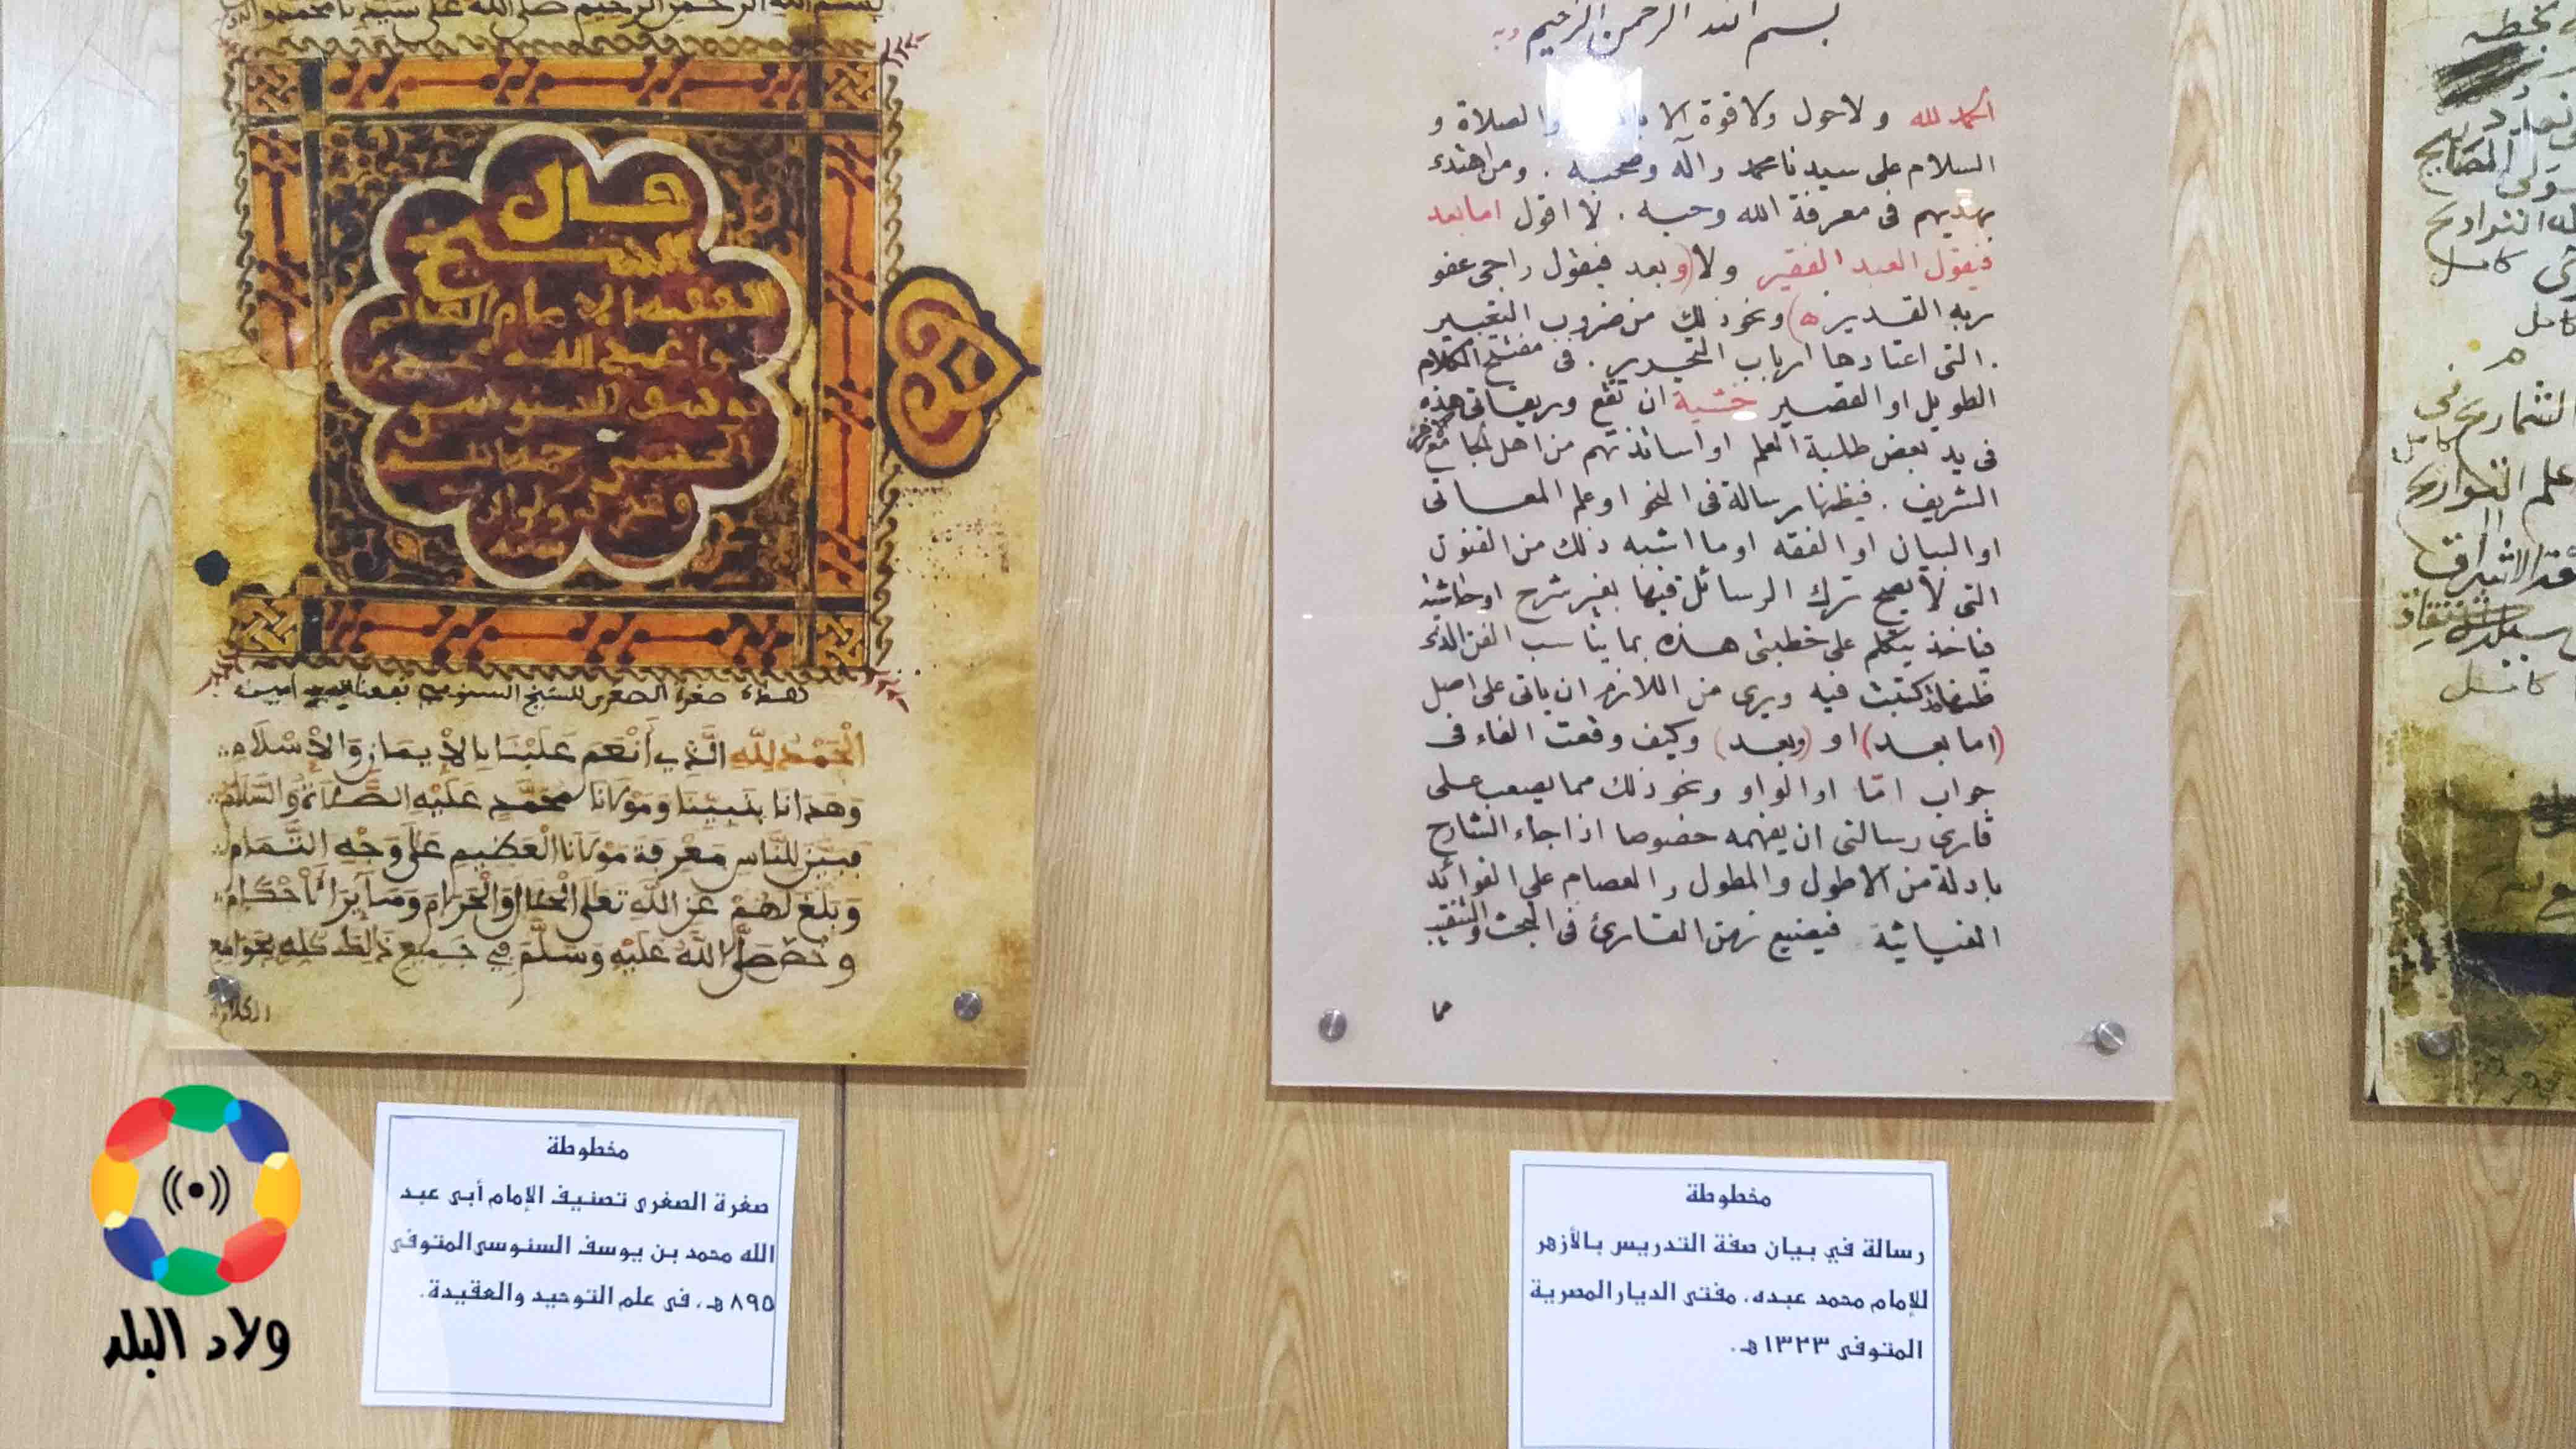 بسم الله الرحمن الرحيم صلى الله على سيدنا محمد
قال
الشيخ
الفقيه الامام العالم
ابو عبد الله محمد بن
يوسف السنوسي
الحسني رحمه الله
هذه صغرة الصغرى للشيخ السنوسي نفعنا الله به امين
الْحَمْدُ لِلَّهِ الَّذِي أَنْعَمَ عَلَيْنَا بِالْإِيمَانِ وَالْإِسْلَامِ
وَهَدَانَا بِنَبِيِّنَا وَمَوْلَانَا مُحَمَّدٍ عَلَيْهِ الصَّلَاةُ وَالسَّلَامُ
فَبَيَّنَ لِلنَّاسِ مَعْرِفَةَ مَوْلَانَا الْعَظِيمِ عَلَى وَجْهِ التَّمَامِ
وَبَلَّغَ لَهُمْ عَنِ اللَّهِ تَعَلَى الْحَلَالَ وَالْحَرَامَ وَسَائِرَ الْأَحْكَامِ
وَخُصَّ صَلَّى اللَّهُ عَلَيْهِ وَسَلَّمَ فِي جَمِيعِ ذَلِكَ كُلِّهِ بِجَوَامِعِ
الكلام
مخطوطة
صغرة الصغرى تصنيف الإمام أبى عبد
الله محمد بن يوسف السنوسى المتوفى
٨٩٥ هـ، فى علم التوحيد والعقيدة.
بسم الله الرحمن الرحيم
الحمد لله ولا حول ولا قوة الا والصلاة و
السلام على سيدنا محمد وآله وصحبه . ومن اهتدى
بهديهم فى معرفة الله وحبه . لا اقول اما بعد
فيقول العبد الفقير ولا (وبعد فيقول راجى عفو
ربه القدير) ونحو ذلك من ضروب التعبير
. التى اعتادها ارباب التحرير . فى مفتتح الكلام
الطويل او القصير خشية ان تقع وريقاتى هذه
فى يد بعض طلبة العلم او اساتذتهم من اهل الجامع الازهر
الشريف . فيظنها رسالة فى النحو او علم المعانى
او البيان او الفقه او ما اشبه ذلك من الفنون
التى لا يصح ترك الرسائل فيها بغير شرح او حاشية
فيأخذ يتكلم على خطبتى هذه بما يناسب الفن الذى
ظنها كتبت فيه ويرى من اللازم ان ياتى على اصل
(اما بعد) او (وبعد) وكيف وقعت الفاء فى
جواب امّا او الواو ونحو ذلك مما يصعب على
قارى رسالتى ان يفهمه خصوصا اذا جاء الشارح
بادلة من الاطول والمطول والعصام على الفوائد
الغياثية فيضيع زمن القارئ فى البحث والتنقيب
مما
مخطوطة
رسالة في بيان صفة التدريس بالأزهر
للإمام محمد عبده، مفتى الديار المصرية
المتوفى ١٣٢٣هـ.
بخطه
المصابيح
كامل
كامل
الشماريخ فى
كامل
علم التواريخ
كامل
ولاد البلد